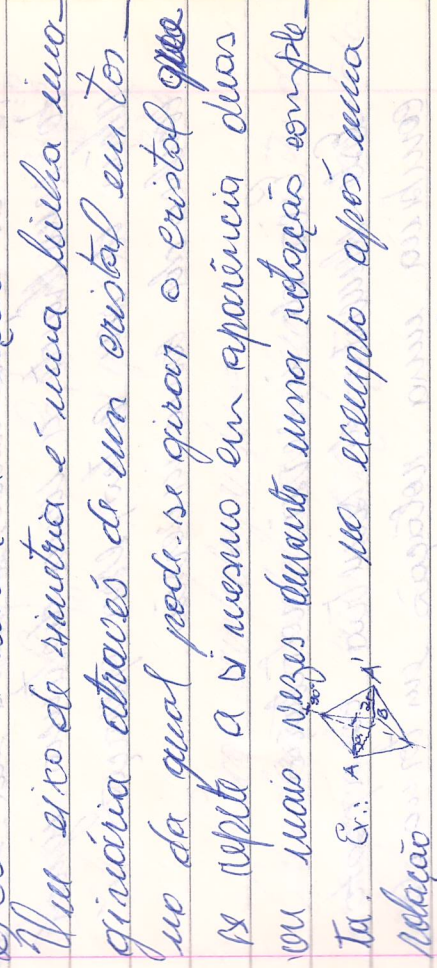 Um eixo de simetria é uma linha ima-
ginária através de um cristal em tor-
no da qual pode-se girar o cristal que
se repete a si mesmo em aparência duas
ou mais vezes durante uma rotação comple-
ta. Ex.: A A' B 90° no exemplo após uma
rotação